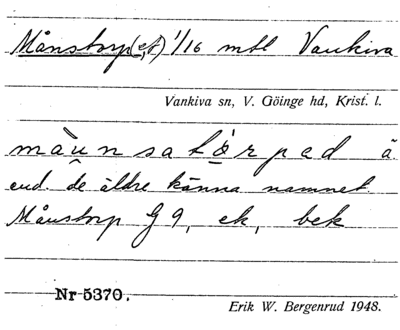 Månstorp(et) 1/16 mtl Vankiva
Vankiva sn, V. Göinge hd, Krist. l.
må̀u̯nsatò̱rpad ä
end. de äldre känna namnet
Månstorp G 9, ek, bek
Nr 5370.
Erik W. Bergenrud 1948.